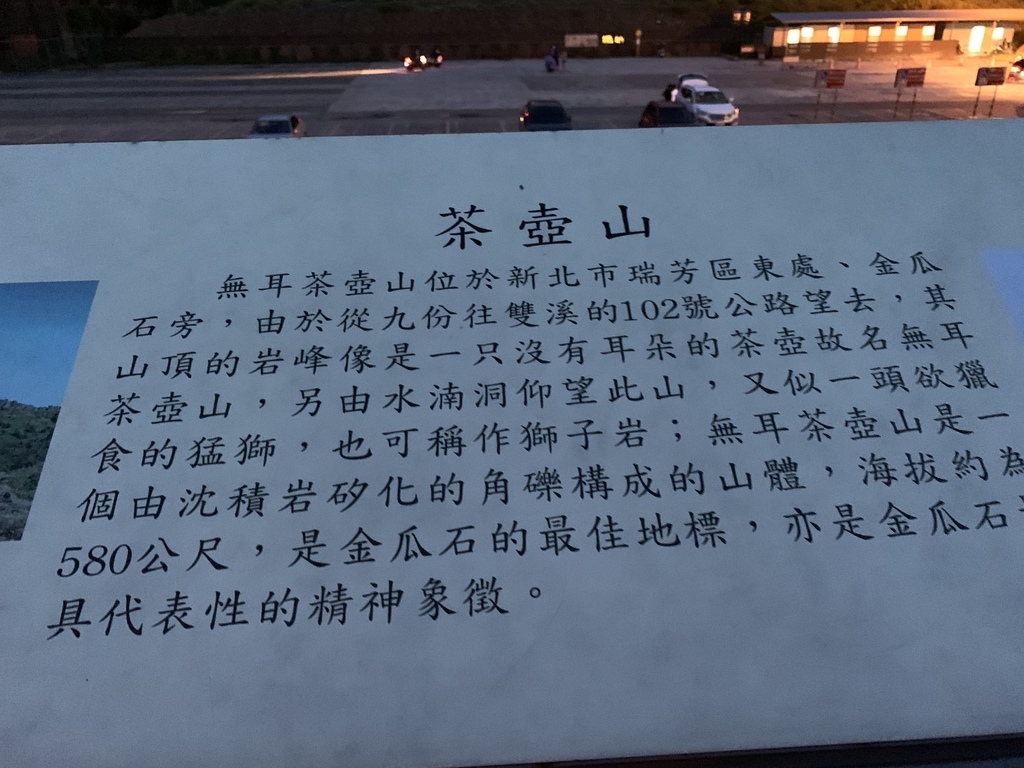 茶壺山
無耳茶壺山位於新北市瑞芳區東處、金瓜
石旁，由於從九份往雙溪的102號公路望去，其
山頂的岩峰像是一只沒有耳朵的茶壺故名無耳
茶壺山，另由水湳洞仰望此山，又似一頭欲獵
食的猛獅，也可稱作獅子岩；無耳茶壺山是一
個由沈積岩矽化的角礫構成的山體，海拔約為
580公尺，是金瓜石的最佳地標，亦是金瓜石
具代表性的精神象徵。